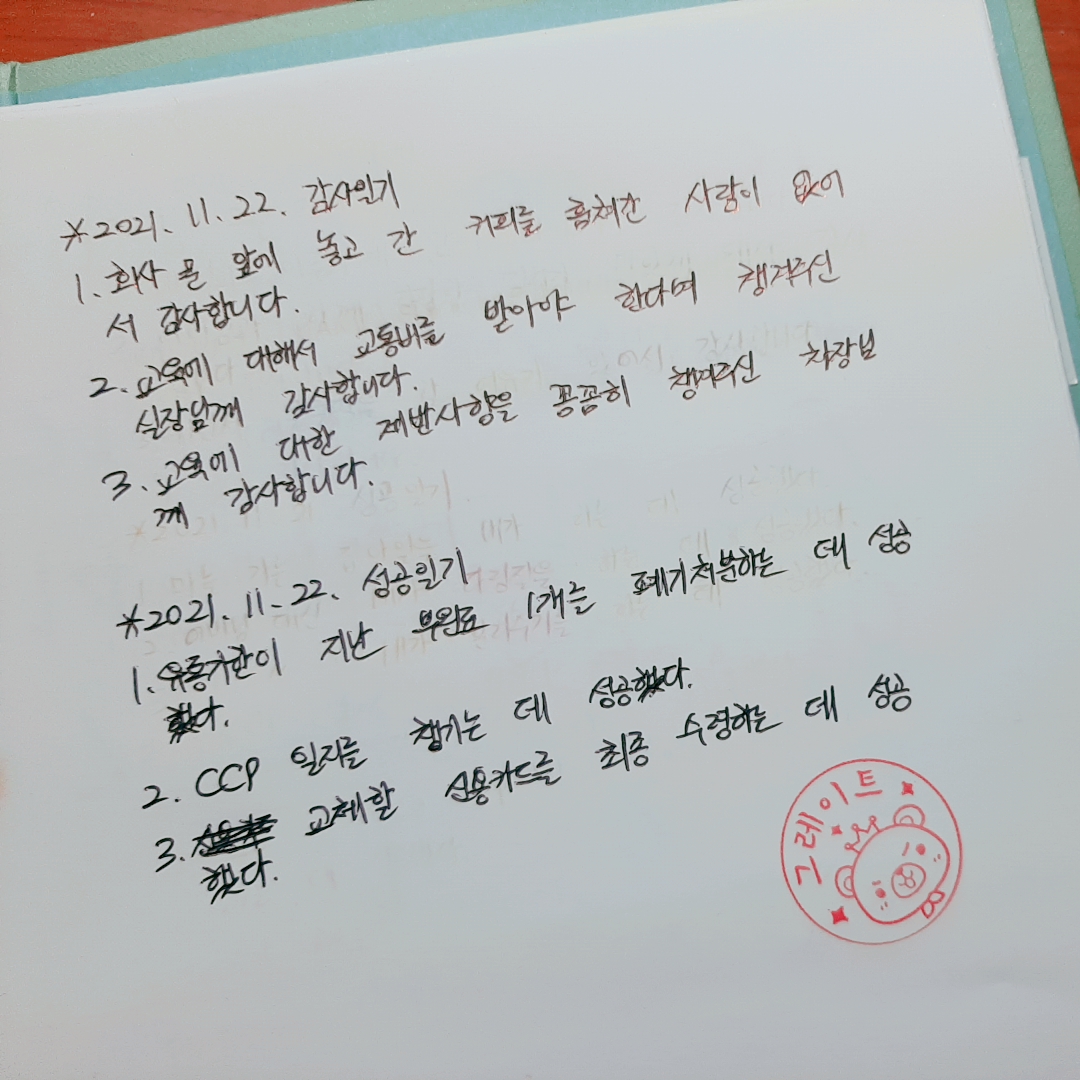 *2021. 11. 22. 감사일기
1. 회사 문 앞에 놓고 간 커피를 훔쳐간 사람이 없어
서 감사합니다.
2. 교육에 대해서 교통비를 받아야 한다며 챙겨주신
실장님께 감사합니다.
3. 교육에 대한 제반사항을 꼼꼼히 챙겨주신 차장님
께 감사합니다.
*2021. 11. 22. 성공일기
1. 유통기한이 지난 부원료 1개를 폐기처분하는 데 성공
했다.
2. CCP 일지를 챙기는 데 성공했다.
3. 교체할 신용카드를 최종 수령하는 데 성공
했다.
그레이트